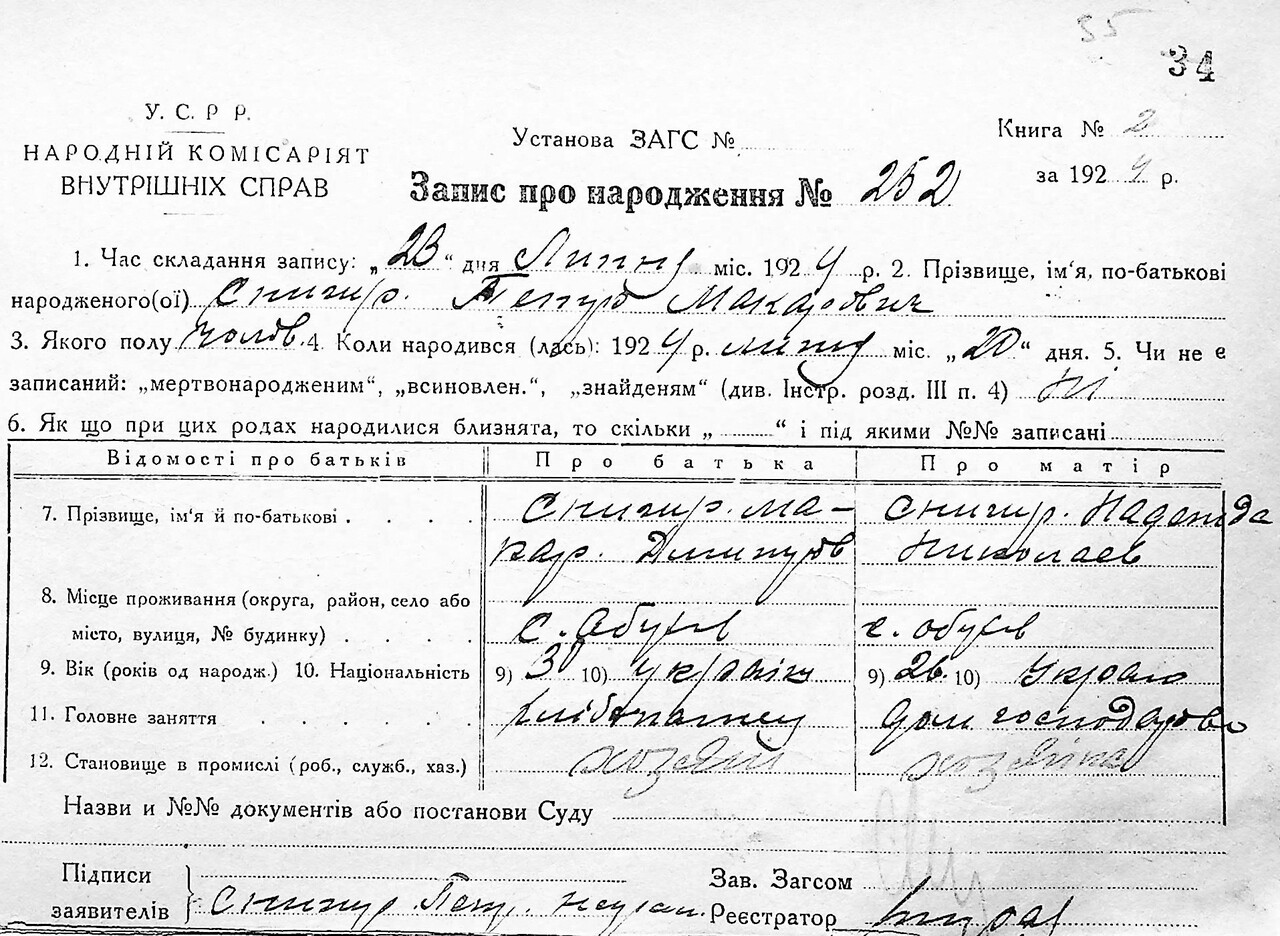 55
34
У. С. Р Р.
НАРОДНІЙ КОМІСАРІЯТ
ВНУТРІШНІХ СПРАВ
Установа ЗАГС №
Книга № 2
за 1924 р.
Запис про народження № 252
1. Час складання запису: „23“ дня Липня міс. 1924 р. 2. Прізвище, ім'я, по-батькові
народженого(ої) Снигир. Петро Макарович
3. Якого полу чолов. 4. Коли народився (лась): 1924 р. липня міс. „20“ дня. 5. Чи не є
записаний: „мертвонародженим“, „всиновлен.“, „знайденям“ (див. Інстр. розд. III п. 4) Ні
6. Як що при цих родах народилися близнята, то скільки „ “ і під якими №№ записані
Відомості про батьків Про батька Про матір
7. Прізвище, ім'я й по-батькові . . . . Снигир. Ма- Снигир. Надежда
кар. Дмитров Николаев
8. Місце проживання (округа, район, село або
місто, вулиця, № будинку) . . . . с. Обухів с. Обухів
9. Вік (років од народж.) 10. Національність 9) 10) україн 9) 26. 10) Україн
11. Головне заняття . . . . . . хлібопашец дом господарство
12. Становище в промислі (роб., служб., хаз.) хозяїн хозяїнка
Назви и №№ документів або постанови Суду
Підписи
заявителів Снигир
Зав. Загсом
Реєстратор